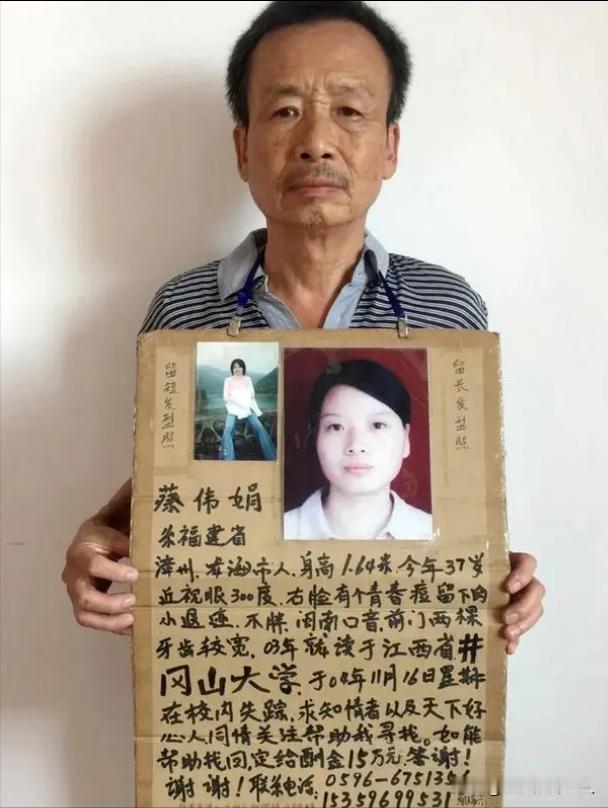 留短发型照
留长发型照
蔡伟娟
福建省
漳州、龙海市人、身高1.64米今年37岁
近视眼300度、右脸有个青春痘留下的
小退迹、不胖、闽南口音、前门两棵
牙齿较宽、03年就读于江西省井
冈山大学、于04年11月16日星期
在校内失踪、求知情者以及天下好
心人、同情关注帮助我寻找。如能
帮助找回定给酬金15万元答谢!
谢谢!联系电话:0596-675135
15359699531